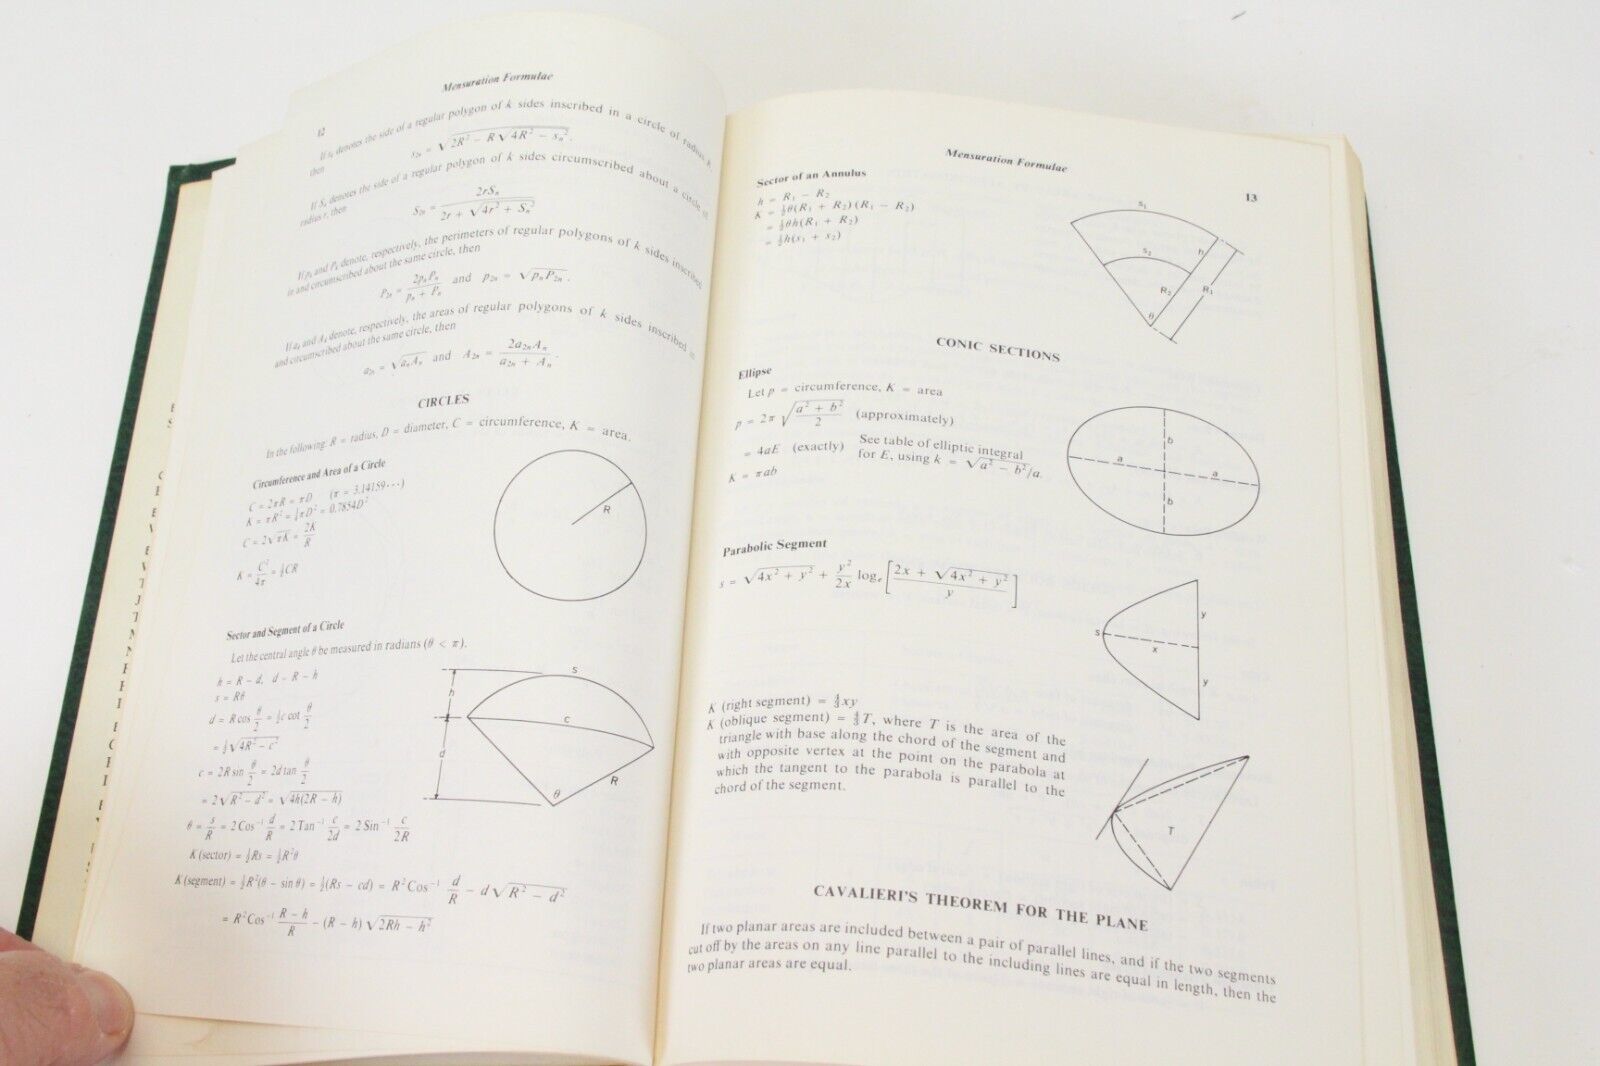 Mensuration Formulae
12
If sₖ denotes the side of a regular polygon of k sides inscribed in a circle of radius R,
then
s₂ₙ = √(2R² − R√(4R² − sₙ²)).
If Sₖ denotes the side of a regular polygon of k sides circumscribed about a circle of
radius r, then
S₂ₙ = 2rSₙ / (2r + √(4r² + Sₙ²))
If pₖ and Pₖ denote, respectively, the perimeters of regular polygons of k sides inscribed
in and circumscribed about the same circle, then
P₂ₙ = 2pₙPₙ / (pₙ + Pₙ) and p₂ₙ = √(pₙP₂ₙ).
If aₖ and Aₖ denote, respectively, the areas of regular polygons of k sides inscribed in
and circumscribed about the same circle, then
a₂ₙ = √(aₙAₙ) and A₂ₙ = 2a₂ₙAₙ / (a₂ₙ + Aₙ).
CIRCLES
In the following, R = radius, D = diameter, C = circumference, K = area.
Circumference and Area of a Circle
C = 2πR = πD (π = 3.14159···)
K = πR² = ¼πD² = 0.7854D²
C = 2√(πK) = 2K/R
K = C²/4π = ½CR
R
Sector and Segment of a Circle
Let the central angle θ be measured in radians (θ < π).
h = R − d, d = R − h
s = Rθ
d = R cos θ/2 = ½c cot θ/2
= ½√(4R² − c²)
c = 2R sin θ/2 = 2d tan θ/2
= 2√(R² − d²) = √(4h(2R − h))
θ = s/R = 2 Cos⁻¹ d/R = 2 Tan⁻¹ c/2d = 2 Sin⁻¹ c/2R
K (sector) = ½Rs = ½R²θ
K (segment) = ½R²(θ − sin θ) = ½(Rs − cd) = R² Cos⁻¹ d/R − d√(R² − d²)
= R² Cos⁻¹ (R − h)/R − (R − h)√(2Rh − h²)
s
h
c
d
R
θ
Mensuration Formulae
13
Sector of an Annulus
h = R₁ − R₂
K = ½θ(R₁ + R₂)(R₁ − R₂)
= ½θh(R₁ + R₂)
= ½h(s₁ + s₂)
s₁
s₂
h
R₂
R₁
θ
CONIC SECTIONS
Ellipse
Let p = circumference, K = area
p = 2π √((a² + b²)/2) (approximately)
= 4aE (exactly) See table of elliptic integral
for E, using k = √(a² − b²)/a.
K = πab
b
a
a
b
Parabolic Segment
s = √(4x² + y²) + y²/2x logₑ [(2x + √(4x² + y²))/y]
y
s
x
y
K (right segment) = ⁴⁄₃xy
K (oblique segment) = ⁴⁄₃T, where T is the area of the
triangle with base along the chord of the segment and
with opposite vertex at the point on the parabola at
which the tangent to the parabola is parallel to the
chord of the segment.
T
CAVALIERI'S THEOREM FOR THE PLANE
If two planar areas are included between a pair of parallel lines, and if the two segments
cut off by the areas on any line parallel to the including lines are equal in length, then the
two planar areas are equal.